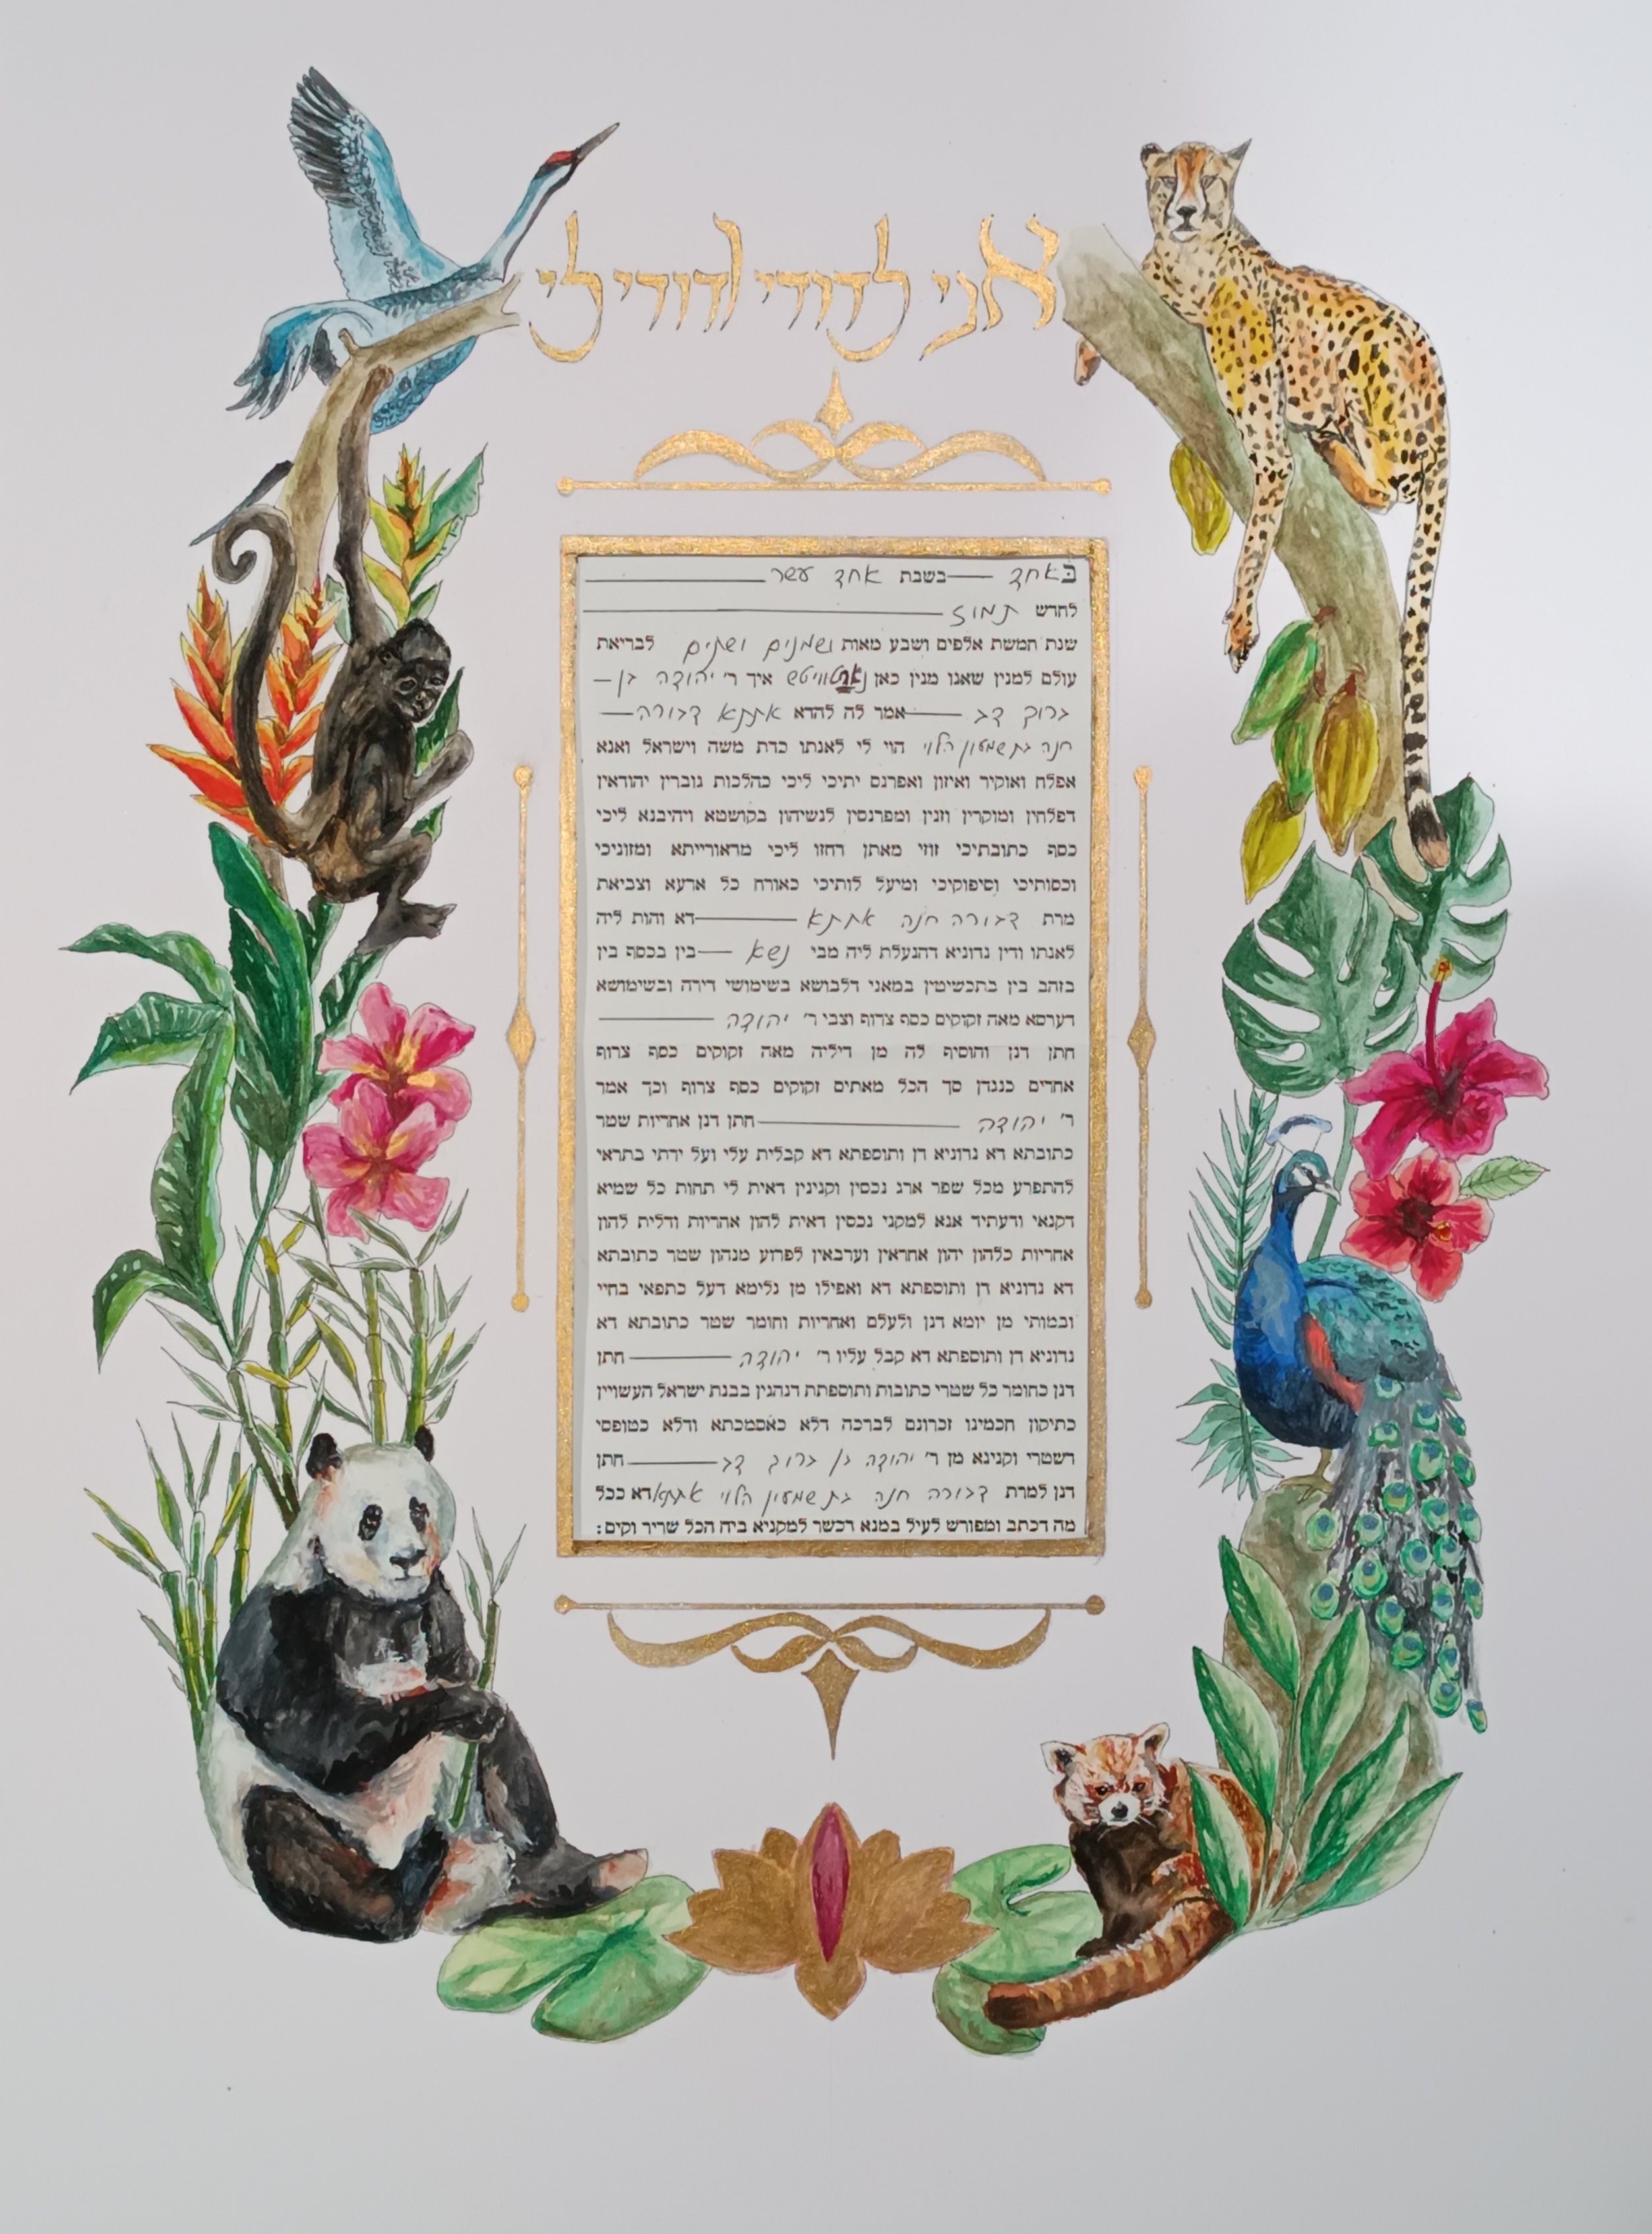 אני לדודי ודודי לי
באחד בשבת אחד עשר
לחדש תמוז
שנת חמשת אלפים ושבע מאות ושמנים ושתים לבריאת
עולם למנין שאנו מנין כאן איך ר' יהודה בן
ברוך דב אמר לה להדא אתתא דבורה
חנה בת שמעון הלוי הוי לי לאנתו כדת משה וישראל ואנא
אפלח ואוקיר ואיזון ואפרנס יתיכי ליכי כהלכות גוברין יהודאין
דפלחין ומוקרין וזנין ומפרנסין לנשיהון בקושטא ויהיבנא ליכי
כסף כתובתיכי זוזי מאתן דחזו ליכי מדאורייתא ומזוניכי
וכסותיכי וסיפוקיכי ומיעל לותיכי כאורח כל ארעא וצביאת
מרת דבורה חנה אתתא דא והות ליה
לאנתו ודין נדוניא דהנעלת ליה מבי נשא בין בכסף בין
בזהב בין בתכשיטין במאני דלבושא בשימושי דירה ובשימושא
דערסא מאה זקוקים כסף צרוף וצבי ר' יהודה
חתן דנן והוסיף לה מן דיליה מאה זקוקים כסף צרוף
אחרים כנגדן סך הכל מאתים זקוקים כסף צרוף וכך אמר
ר' יהודה חתן דנן אחריות שטר
כתובתא דא נדוניא דן ותוספתא דא קבלית עלי ועל ירתי בתראי
להתפרע מכל שפר ארג נכסין וקנינין דאית לי תחות כל שמיא
דקנאי ודעתיד אנא למקני נכסין דאית להון אחריות ודלית להון
אחריות כלהון יהון אחראין וערבאין לפרוע מנהון שטר כתובתא
דא נדוניא דן ותוספתא דא ואפילו מן גלימא דעל כתפאי בחיי
ובמותי מן יומא דנן ולעלם ואחריות וחומר שטר כתובתא דא
נדוניא דן ותוספתא דא קבל עליו ר' יהודה חתן
דנן כחומר כל שטרי כתובות ותוספתת דנהגין בבנת ישראל העשויין
כתיקון חכמינו זכרונם לברכה דלא כאסמכתא ודלא כטופסי
דשטרי וקנינא מן ר' יהודה בן ברוך דב חתן
דנן למרת דבורה חנה בת שמעון הלוי אתתא דא ככל
מה דכתב ומפורש לעיל במנא דכשר למקניא ביה הכל שריר וקים: